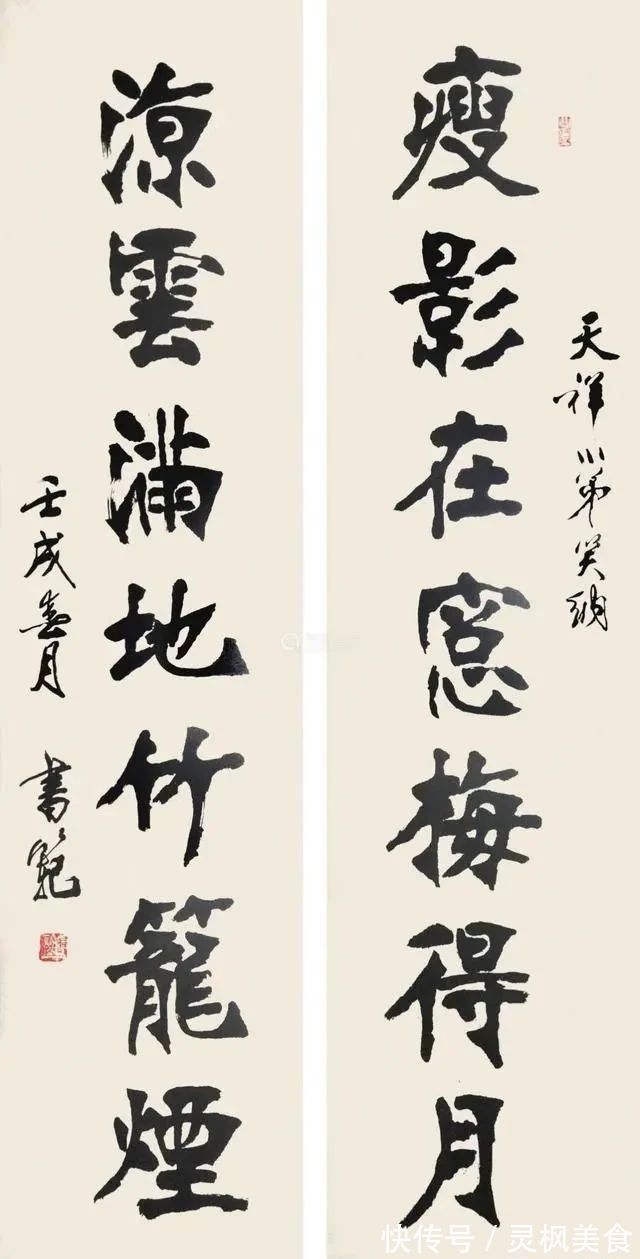 天祥小弟笑納
瘦影在窓梅得月
涼雲滿地竹籠煙
壬戌春月 書範
快传号/灵枫美食